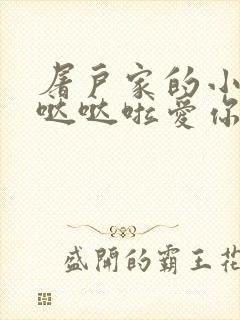 屠户家的小
哒哒啦爱你
盛開的霸王花